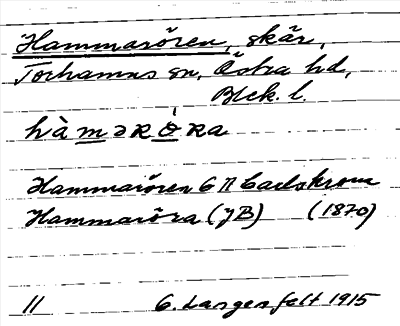 Hammarören, skär,
Torhamns sn, Östra hd,
Blek. l.
hàməRöRa
Hammarören G Π Carlskrona
Hammaröra (JB) (1870)
11 G. Langenfelt 1915